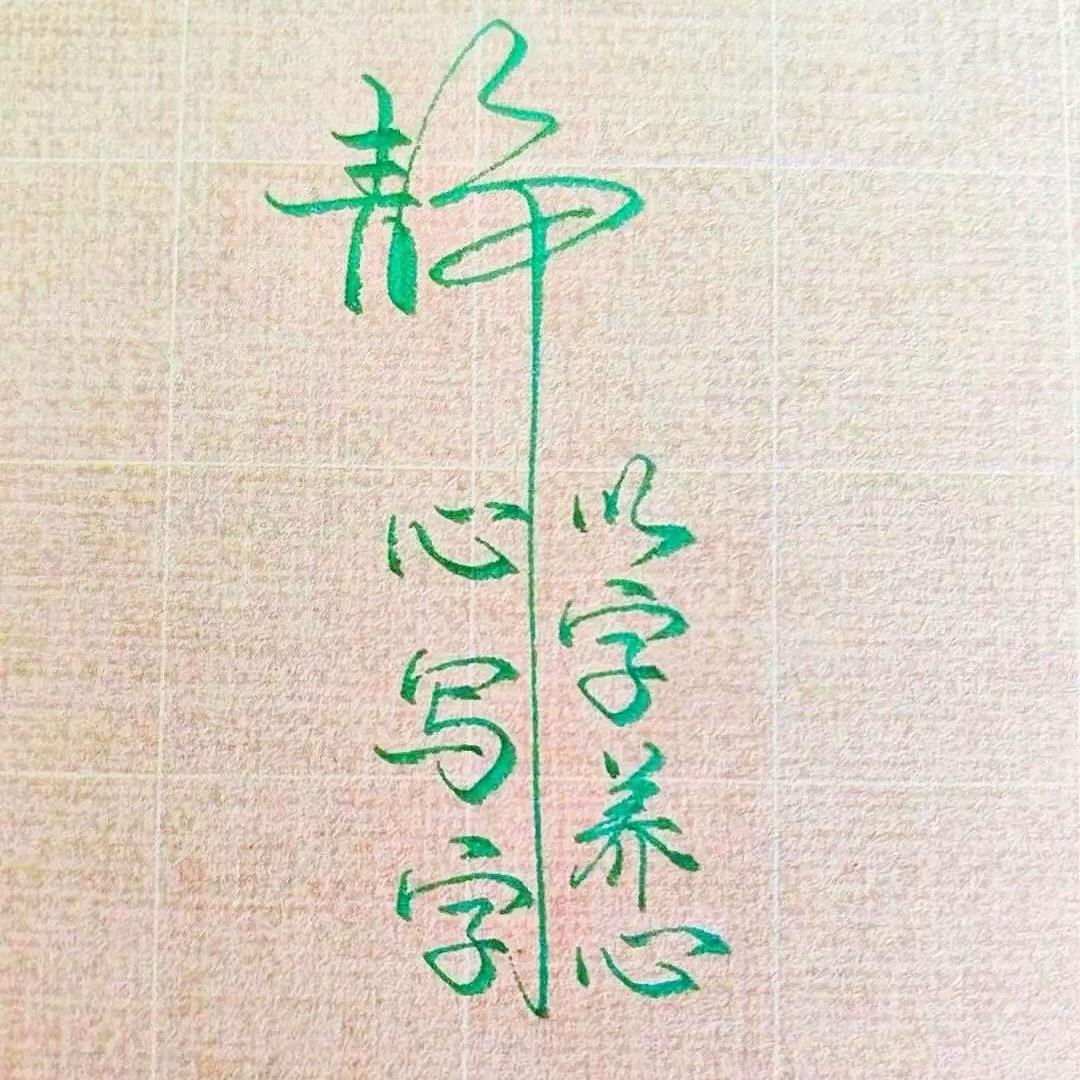 静
心写字
以字养心